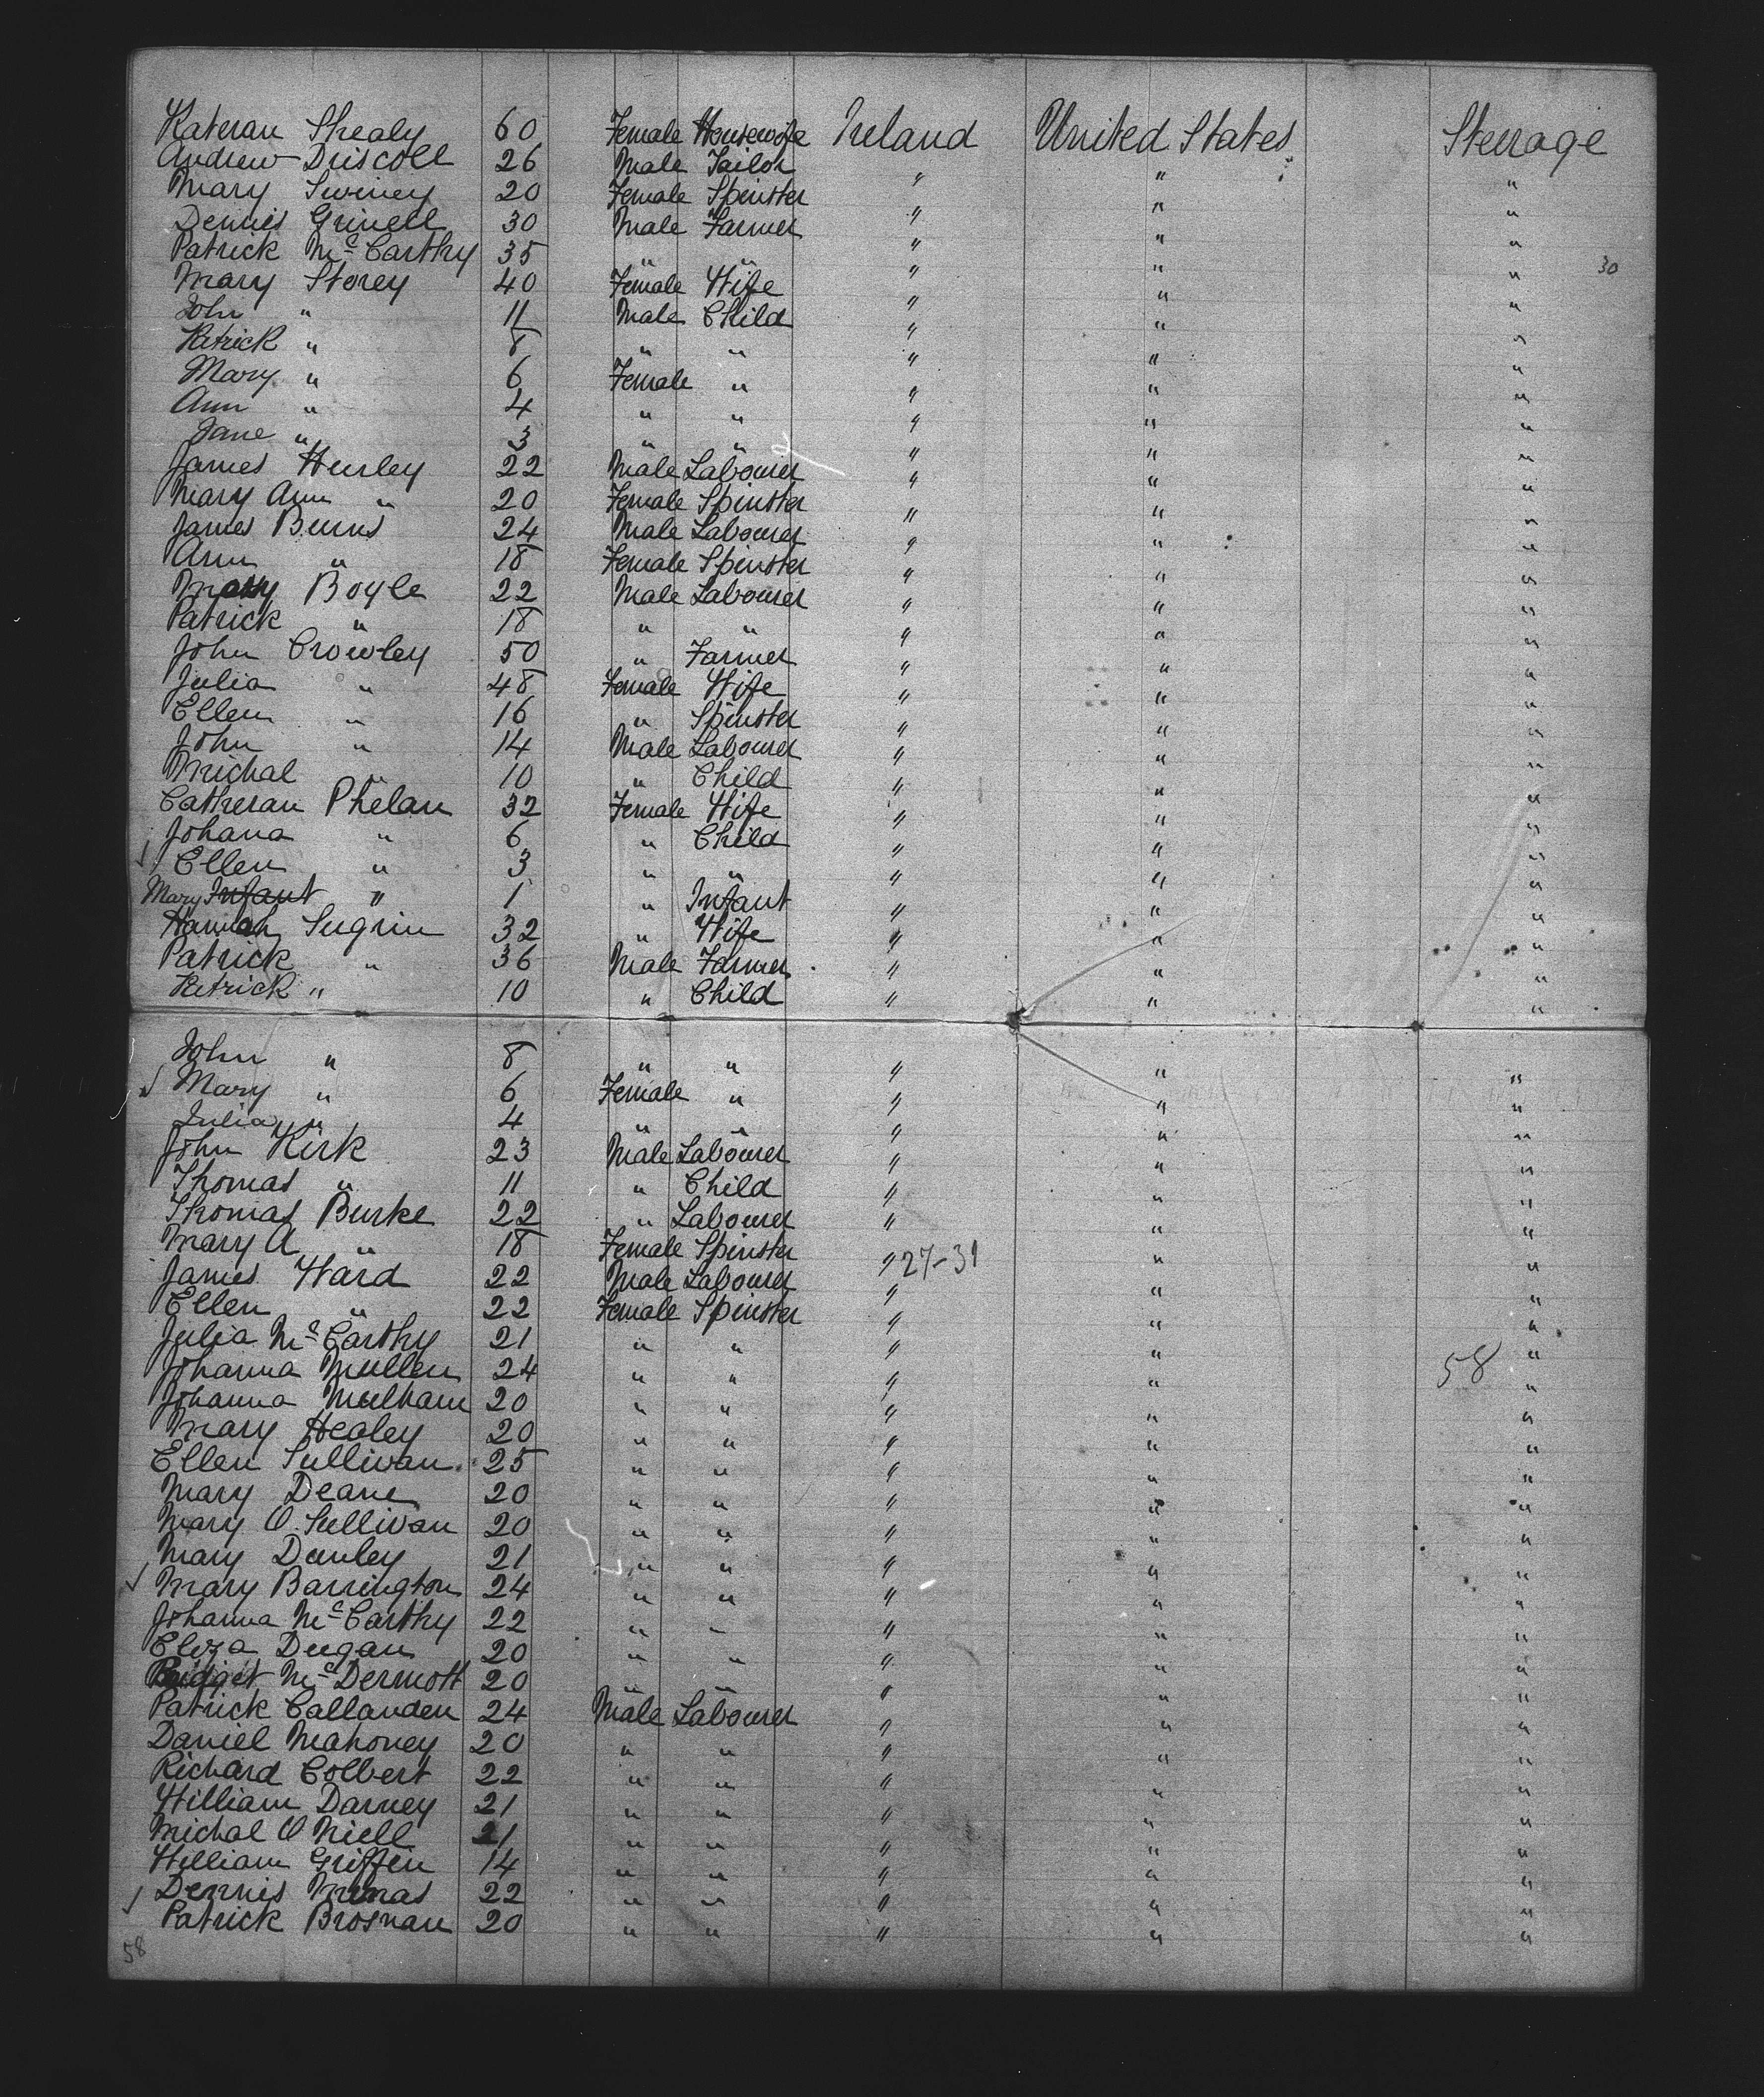 Kateran Shealy 60 Female Housewife Ireland United States Sterrage
Andrew Driscoll 26 Male Tailor " " "
Mary Swiney 20 Female Spinster " " "
Dennis Grinell 30 Male Farmer " " "
Patrick McCarthy 35 " " " " " 30
Mary Storey 40 Female Wife " " "
John " 11 Male Child " " "
Patrick " 8 " " " " "
Mary " 6 Female " " " "
Ann " 4 " " " " "
Jane " 3 " " " " "
James Hurley 22 Male Labourer " " "
Mary Ann " 20 Female Spinster " " "
James Burns 24 Male Labourer " " "
Ann " 18 Female Spinster " " "
Mary Boyle 22 Male Labourer " " "
Patrick " 18 " " " " "
John Crowley 50 " Farmer " " "
Julia " 48 Female Wife " " "
Ellen " 16 " Spinster " " "
John " 14 Male Labourer " " "
Michal " 10 " Child " " "
Catheran Phelan 32 Female Wife " " "
Johana " 6 " Child " " "
Ellen " 3 " " " " "
Mary Infant " 1 " Infant " " "
Hannah Sugrin 32 " Wife " " "
Patrick " 36 Male Farmer " " "
Patrick " 10 " Child " " "
John " 8 " " " " "
Mary " 6 Female " " " "
Julia " 4 " " " " "
John Kirk 23 Male Labourer " " "
Thomas " 11 " Child " " "
Thomas Burke 22 " Labourer " " "
Mary A " 18 Female Spinster " 27-31 " "
James Ward 22 Male Labourer " " "
Ellen " 22 Female Spinster " " "
Julia McCarthy 21 " " " " "
Johanna Mullen 24 " " " " 58 "
Johanna Mulham 20 " " " " "
Mary Healey 20 " " " " "
Ellen Sullivan 25 " " " " "
Mary Deane 20 " " " " "
Mary O.Sullivan 20 " " " " "
Mary Dunley 21 " " " " "
Mary Barrington 24 " " " " "
Johanna McCarthy 22 " " " " "
Eliza Dugan 20 " " " " "
Bridget McDermott 20 " " " " "
Patrick Callanden 24 Male Labourer " " "
Daniel Mahoney 20 " " " " "
Richard Colbert 22 " " " " "
William Darney 21 " " " " "
Michal O Niell 21 " " " " "
William Griffin 14 " " " " "
Dennis 22 " " " " "
Patrick Brosnan 20 " " " " "
58